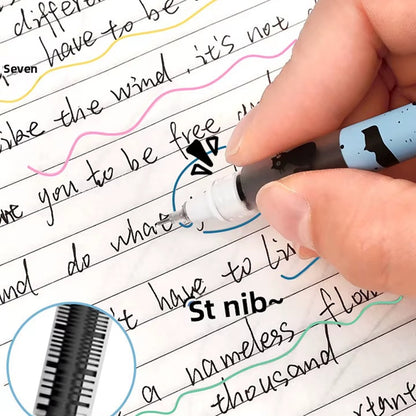 differen
have to be
Seven
like the wind, it's not
you to be free
and do what
't have to li
St nib~
a nameless flow
thousand